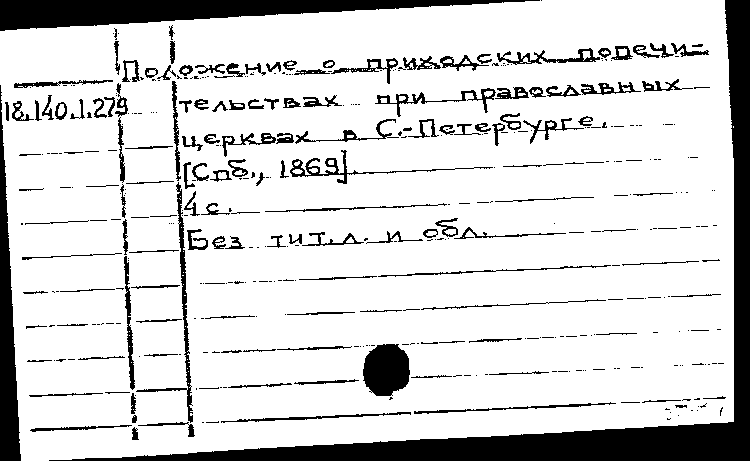 Положение о приходских попечи-
18.140.1.279 тельствах при православных
церквах в С.-Петербурге.
[Спб., 1869].
4 с.
Без тит.л. и обл.